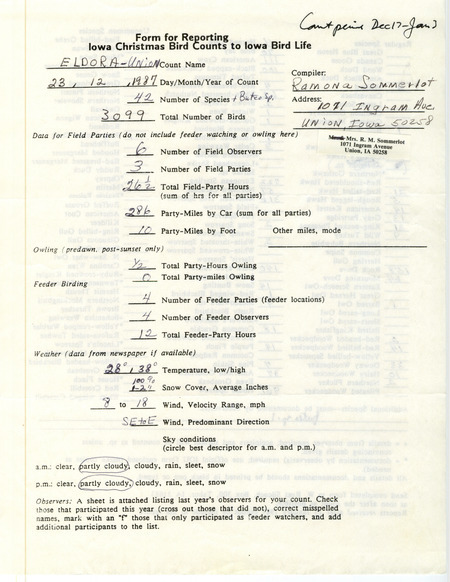 Count period Dec 17-Jan 3
Form for Reporting
Iowa Christmas Bird Counts to Iowa Bird Life
ELDORA-UNION Count Name
23, 12, 1987 Day/Month/Year of Count
42 Number of Species + Buteo Sp.
3099 Total Number of Birds
Compiler:
Ramona Sommerlot
Address:
1071 Ingram Ave
Union, Iowa 50258
Mrs. R. M. Sommerlot
1071 Ingram Avenue
Union, IA 50258
Data for Field Parties (do not include feeder watching or owling here)
6 Number of Field Observers
3 Number of Field Parties
26 1/2 Total Field-Party Hours
(sum of hrs for all parties)
286 Party-Miles by Car (sum for all parties)
10 Party-Miles by Foot Other miles, mode
Owling (predawn, post-sunset only)
1/2 Total Party-Hours Owling
0 Total Party-miles Owling
Feeder Birding
4 Number of Feeder Parties (feeder locations)
4 Number of Feeder Observers
12 Total Feeder-Party Hours
Weather (data from newspaper if available)
28°, 38° Temperature, low/high
100%
1-2" Snow Cover, Average Inches
8 to 18 Wind, Velocity Range, mph
SE to E Wind, Predominant Direction
Sky conditions
(circle best descriptor for a.m. and p.m.)
a.m.: clear, partly cloudy, cloudy, rain, sleet, snow
p.m.: clear, partly cloudy, cloudy, rain, sleet, snow
Observers: A sheet is attached listing last year's observers for your count. Check
those that participated this year (cross out those that did not), correct misspelled
names, mark with an "f" those that only participated as feeder watchers, and add
additional participants to the list.